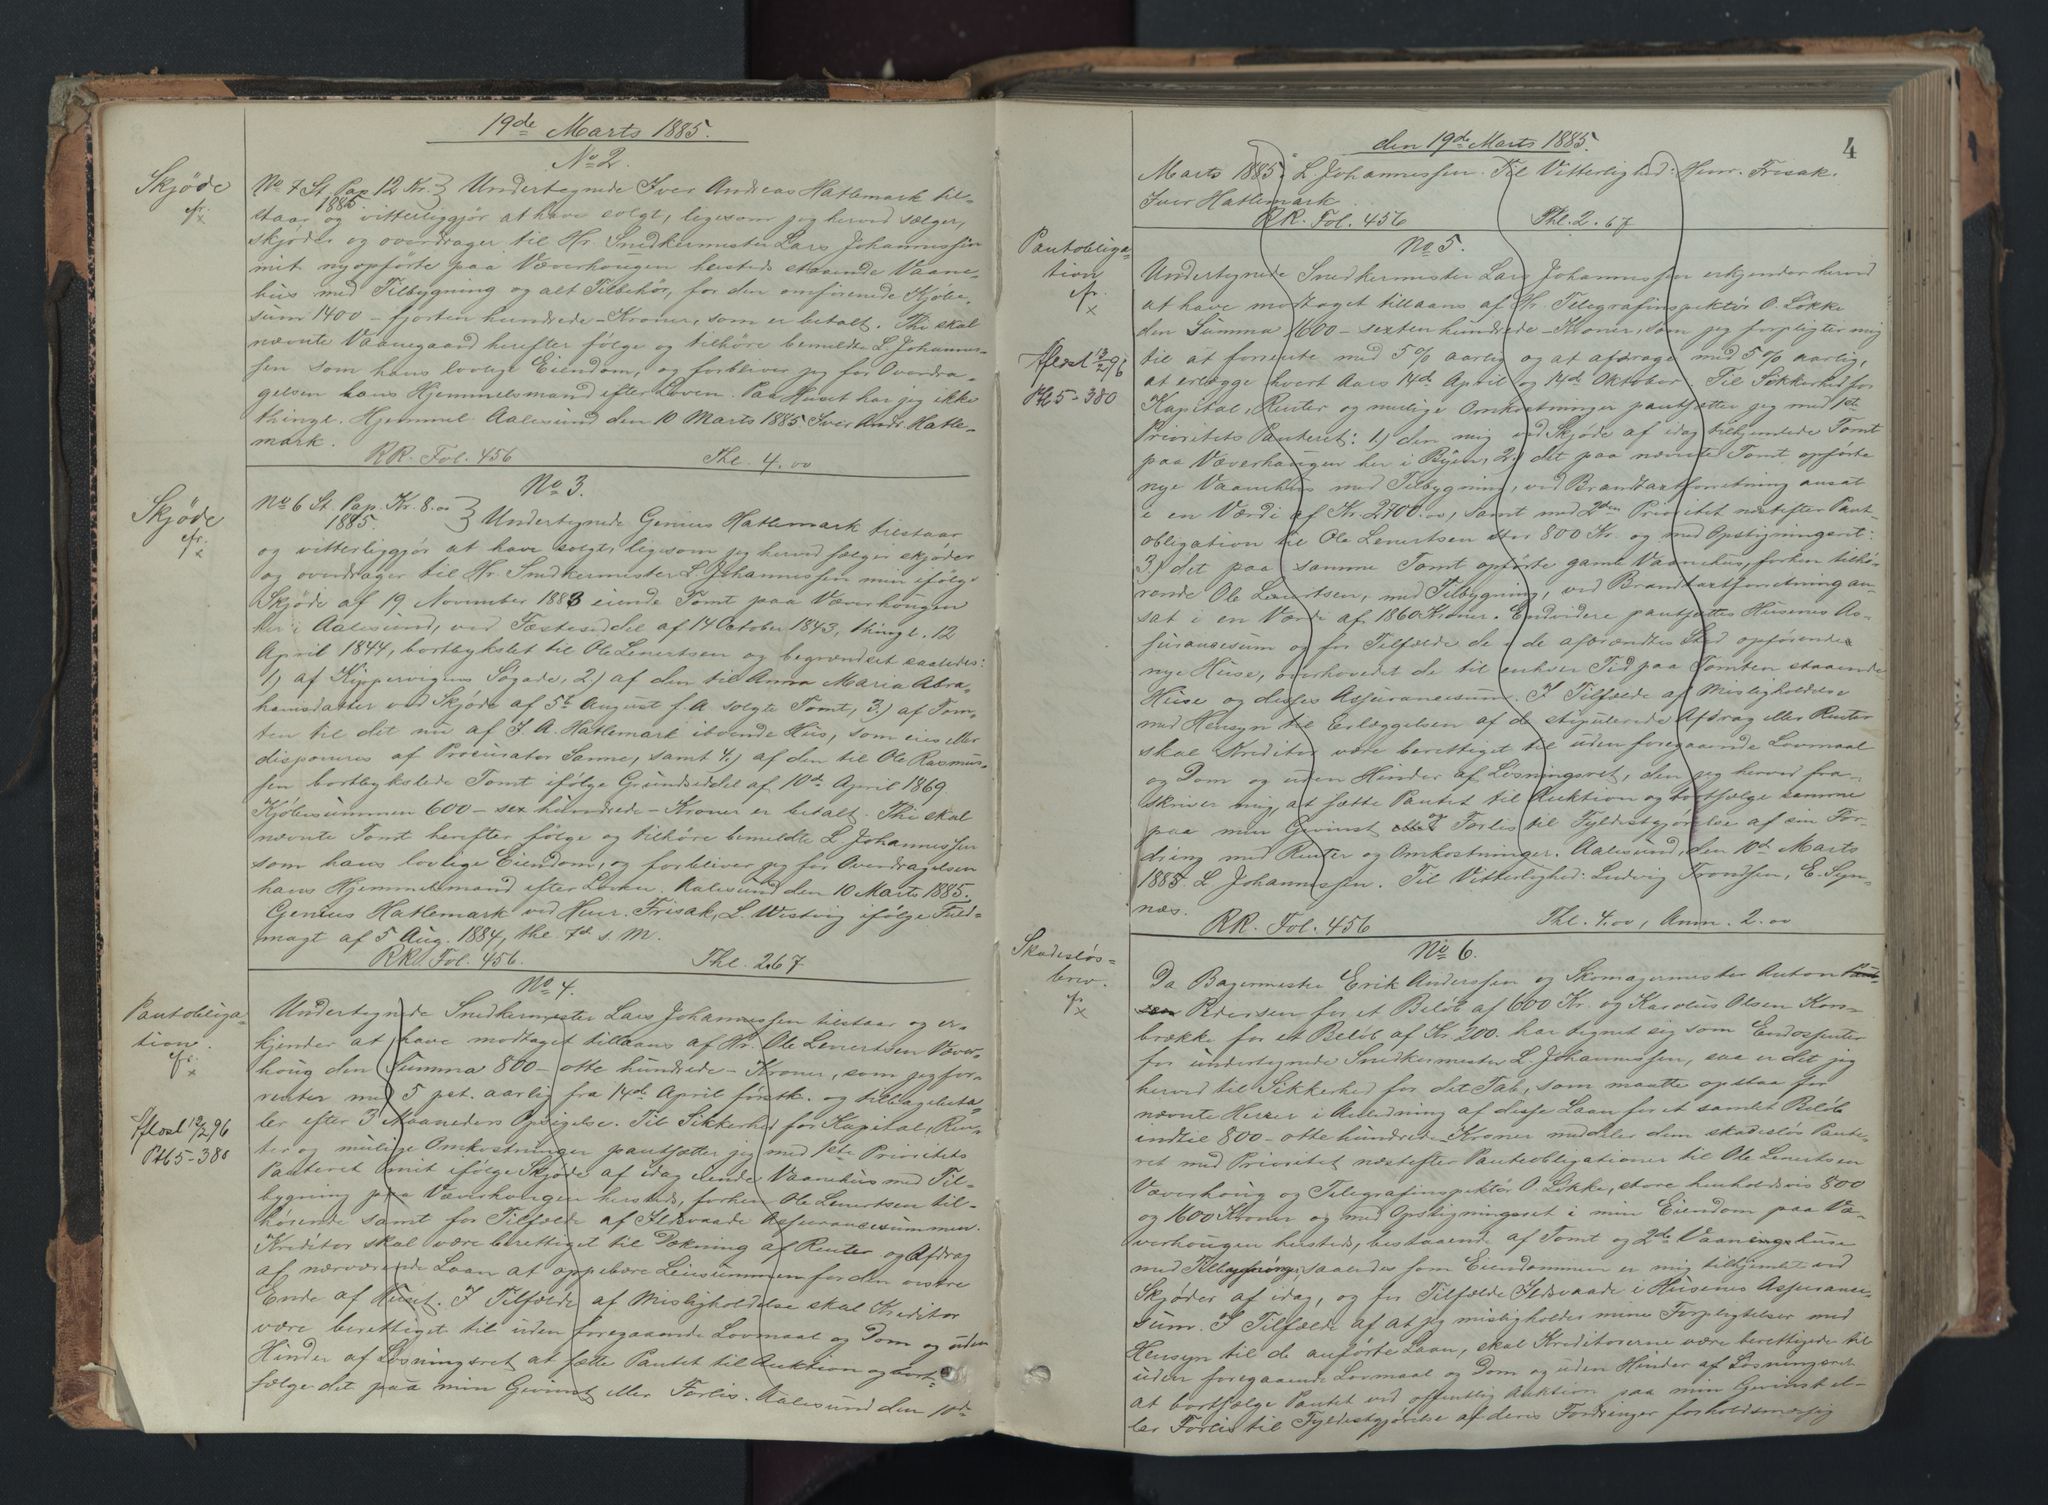 19de Marts 1885.
No 2.
Skjöde
cfr.
x
No 7 St. Pap. 12 Kr. } Undertegnede Iver Andreas Hatlemark til-
1885.
staar og vitterliggjör at have solgt, ligesom jeg herved sælger,
skjöder og overdrager til Hr. Snedkermester Lars Johannessen
mit nyopförte paa Væverhougen hersteds staaende Vaane-
hus med Tilbygning og alt Tilbehör, for den omforenede Kjöbe-
sum 1400 – fjorten hundrede – Kroner, som er betalt. Thi skal
nævnte Vaanegaard herefter fölge og tilhöre bemeldte L. Johannes-
sen som hans lovlige Eiendom, og forbliver jeg for Overdra-
gelsen hans Hjemmelsmand efter Loven. Paa Huset har jeg ikke
thingl. Hjemmel. Aalesund den 10 Marts 1885. Iver Andr. Hatle-
mark.
RR. Fol. 456 Thl. 4.00
No 3.
Skjöde
cfr.
x
No 6 St. Pap. Kr. 8.00 } Undertegnede Genius Hatlemark tilstaar
1885.
og vitterliggjör at have solgt, ligesom jeg herved sælger skjöder
og overdrager til Hr. Snedkermester L. Johannessen min ifölge
Skjöde af 19 November 1883 eiende Tomt paa Væverhougen
her i Aalesund, ved Fæsteseddel af 14 October 1843, thingl. 12
April 1844, bortbyxlet til Ole Lenertsen og begrændset saaledes:
1) af Kippervigens Sögade, 2.) af den til Anna Maria Abra-
hamsdatter ved Skjöde af 5te August f. A. solgte Tomt, 3.) af Tom-
ten til det nu af I. A. Hatlemark iboende Hus, som eies eller
disponeres af Procurator Sanne, samt 4.) af den til Ole Rasmus-
sen bortbyxlede Tomt ifölge Grundseddel af 10de April 1869.
Kjöbesummen 600 – sex hundrede – Kroner er betalt. Thi skal
nævnte Tomt herefter fölge og tilhöre bemeldte L. Johannessen
som hans lovlige Eiendom, og forbliver jeg for Overdragelsen
hans Hjemmelsmand efter Loven. Aalesund den 10 Marts 1885.
Genius Hatlemark ved Henr. Frisak, L. Westvig ifölge Fuld-
magt af 5 Aug. 1884, thl. 7d s. M.
RR. Fol. 456. Thl. 2.67
No 4.
Pantobliga-
tion.
cfr.
x
Aflæst 13/2 96
Pb 5 – 380
Undertegnede Snedkermester Lars Johannessen tilstaar og er-
kjender at have modtaget tillaans af Hr. Ole Lenertsen Væver-
houg den Summa 800 – otte hundrede – Kroner, som jeg for-
renter med 5 pct. aarlig fra 14de April förstk. og tilbagebeta-
ler efter 3 Maaneders Opsigelse. Til Sikkerhed for Kapital, Ren-
ter og mulige Omkostninger pantsætter jeg med 1ste Prioritets
Panteret mit ifölge Skjöde af idag eiende Vaanehus med Til-
bygning paa Væverhougen hersteds, forhen Ole Lenertsen til-
hörende samt for Tilfælde af Ildsvaade Assurancesummen.
Kreditor skal være berettiget til Dækning af Renter og Afdrag
af nærværende Laan at oppebære Leiesummen for den vestre
Ende af Huset. I Tilfælde af Misligholdelse skal Kreditor
være berettiget til uden foregaaende Lovmaal og Dom og uden
Hinder af Lösningsret at sætte Pantet til Auktion og bort-
sælge det paa min Gevinst eller Forlis. Aalesund den 10de
4
den 19de Marts 1885.
Marts 1885. L Johannessen. Til Vitterlighed: Henr. Frisak.
Iver Hatlemark
RR. Fol. 456 Thl. 2.67
No 5.
Pantobliga-
tion
cfr.
x
Aflæst 13/2 96
Pb 5 – 380
Undertegnede Snedkermester Lars Johannessen erkjender herved
at have modtaget tillaans af Hr. Telegrafinspektör O. Lökke
den Summa 1600 – sexten hundrede – Kroner, som jeg forpligter mig
til at forrente med 5 % aarlig og at afdrage med 5 % aarlig,
at erlægge hvert Aars 14de April og 14de Oktober. Til Sikkerhed for
Kapital, Renter og mulige Omkostninger pantsætter jeg med 1ste
Prioritets Panteret: 1.) den mig ved Skjöde af idag tilhjemlede Tomt
paa Væverhaugen her i Byen, 2.) det paa nævnte Tomt opförte
nye Vaanehus med Tilbygning, ved Brandtaxtforretning ansat
i en Værdi af Kr. 2700.00, samt med 2den Prioritet næstefter Pant-
obligation til Ole Lenertsen stor 800 Kr. og med Opstigningsret:
3.) det paa samme Tomt opförte gamle Vaanehus, forhen tilhö-
rende Ole Lenertsen, med Tilbygning, ved Brandtaxtforretning an-
sat i en Værdi af 1860 Kroner. Endvidere pantsættes Husenes As-
surancesum og for Tilfælde de i de afbrændtes Sted opförende
nye Huse, overhovedet de til enhver Tid paa Tomten staaende
Huse og disses Assurancesum. I Tilfælde af Misligholdelse
med Hensyn til Erlæggelsen af de stipulerede Afdrag eller Renter
skal Kreditor være berettiget til uden foregaaende Lovmaal
og Dom og uden Hinder af Lösningsret, den jeg herved fra-
skriver mig, at sætte Pantet til Auktion og bortsælge samme
paa min Gevinst og Forlis til Fyldestgjörelse af sin For-
dring med Renter og Omkostninger. Aalesund, den 10de Marts
1885. L Johannessen. Til Vitterlighed: Ludvig Trondsen, E. Syn-
næs.
RR. Fol. 456 Thl. 4.00, Anm. 2.00
No 6.
Skadeslös-
brev.
cfr.
x
Da Bagermester Erik Anderssen og Skomagermester Anton
Pedersen for et Belöb af 600 Kr. og Karolus Olsen Kors-
brække for et Belöb af Kr. 200. har tegnet sig som Endossenter
for undertegnede Snedkermester L. Johannessen, saa er det jeg
herved til Sikkerhed for det Tab, som maatte opstaa for
nævnte Herrer i Anledning af disse Laan for et samlet Belöb
indtil 800 – otte hundrede Kroner meddeler dem skadeslös Pante-
ret med Prioritet næstefter Panteobligationer til Ole Lenertsen
Væverhoug og Telegrafinspektör O. Lökke, store henholdsvis 800
og 1600 Kroner og med Opstigningsret i min Eiendom paa Væ-
verhougen hersteds, bestaaende af Tomt og 2de Vaaningshuse
med Tilbygninger, saaledes som Eiendommen er mig tilhjemlet ved
Skjöder af idag, og for Tilfælde Ildsvaade i Husenes Assurance-
sum. I Tilfælde af at jeg misligholder mine Forpligtelser med
Hensyn til de anförte Laan, skal Kreditorerne være berettigede til
uden foregaaende Lovmaal og Dom og uden Hinder af Lösningsret
at bortsælge Pantet ved offentlig Auktion paa min Gevinst el-
ler Forlis til Fyldestgjörelse af deres Fordringer forholdsmæssig